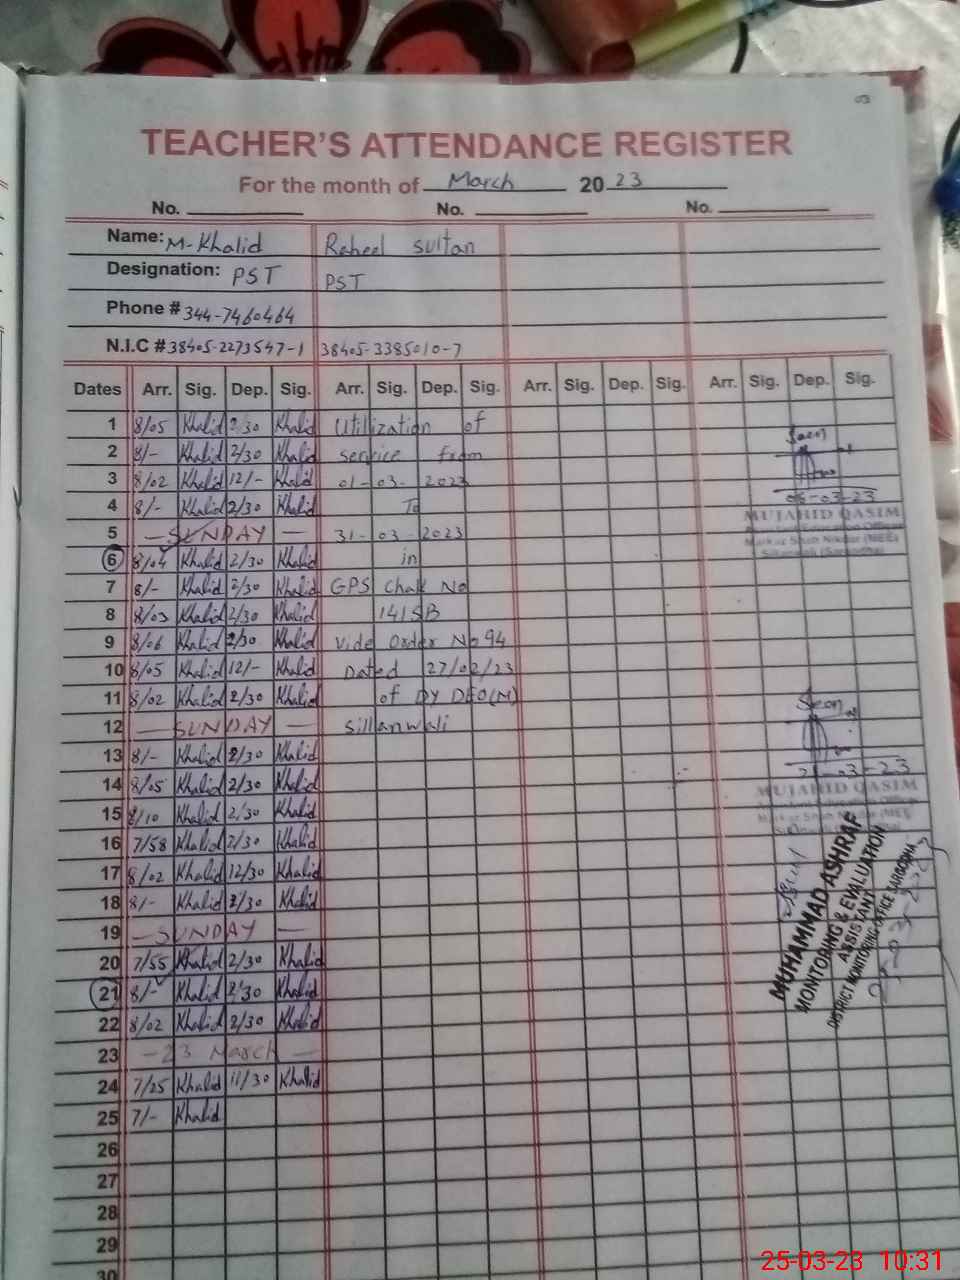 03
TEACHER'S ATTENDANCE REGISTER
For the month of March 2023
No. No. No.
Name: M-Khalid Raheel Sultan
Designation: PST PST
Phone # 344-7460464
N.I.C # 38405-2273547-1 38405-3385010-7
Dates Arr. Sig. Dep. Sig. Arr. Sig. Dep. Sig. Arr. Sig. Dep. Sig. Arr. Sig. Dep. Sig.
1 8/05 Khalid 2/30 Khalid Utilization of
2 8/- Khalid 2/30 Khalid service from Seen
3 8/02 Khalid 12/- Khalid 01-03-2023
4 8/- Khalid 2/30 Khalid To 06-03-23
5 - SUNDAY - 31-03-2023 MUJAHID QASIM
6 8/04 Khalid 2/30 Khalid in
7 8/- Khalid 2/30 Khalid GPS Chak No
8 8/03 Khalid 2/30 Khalid 141SB
9 8/06 Khalid 2/30 Khalid Vide Order No 94
10 8/05 Khalid 12/- Khalid Dated 27/02/23
11 8/02 Khalid 2/30 Khalid of DY DEO(M) Seen
12 - SUNDAY - Sillanwali
13 8/- Khalid 2/30 Khalid
14 8/05 Khalid 2/30 Khalid 21-03-23
15 8/10 Khalid 2/30 Khalid MUJAHID QASIM
16 7/58 Khalid 2/30 Khalid
17 8/02 Khalid 12/30 Khalid
18 8/- Khalid 2/30 Khalid
19 - SUNDAY -
20 7/55 Khalid 2/30 Khalid
21 8/- Khalid 2/30 Khalid
22 8/02 Khalid 2/30 Khalid
23 - 23 March -
24 7/25 Khalid 11/30 Khalid
25 7/- Khalid
26
27
28
29
30
MUHAMMAD ASHRAF
MONITORING & EVALUATION
ASSISTANT
DISTRICT MONITORING OFFICE SARGODHA
25-03-23 10:31